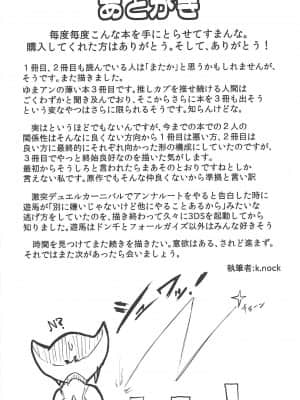 あとがき
毎度毎度こんな本を手にとらせてすまんな。
購入してくれた方はありがとう。そして、ありがとう！
１冊目、２冊目も読んでいる人は「またか」と思うかもしれませんが、
そうです。また描きました。
ゆまアンの薄い本３冊目です。推しカプを推せ続ける人間は
ごくわずかと聞き及んでおり、そこからさらに本を３冊も出そう
という変なやつはさらに限られるそうです。知らんけどな。
実はというほどでもないんですが、今までの本での２人の
関係性はそんなに良くない方向から１冊目は悪い方、２冊目は
良い方に最終的にそれぞれ向かった形の構成にしていたのですが、
３冊目でやっと終始良好なのを描いた気がします。
最初からそうしろと言われたらまぁそのとおりですねとしか
言えない私です。原作でもそんな仲良くないから準拠と言い訳
激突デュエルカーニバルでアンナルートをやると告白した時に
遊馬が「別に嫌いじゃないけど他にやることあるから」みたいな
逃げ方をしていたのを、描き終わって久々に3DSを起動してから
知りました。遊馬はドン千とフォールガイズ以外はみんな好きそう
時間を見つけてまた続きを描きたい。意欲はある、されど進まず。
それではまた次があったら会いましょう。
執筆者:k.nock
シュッ!